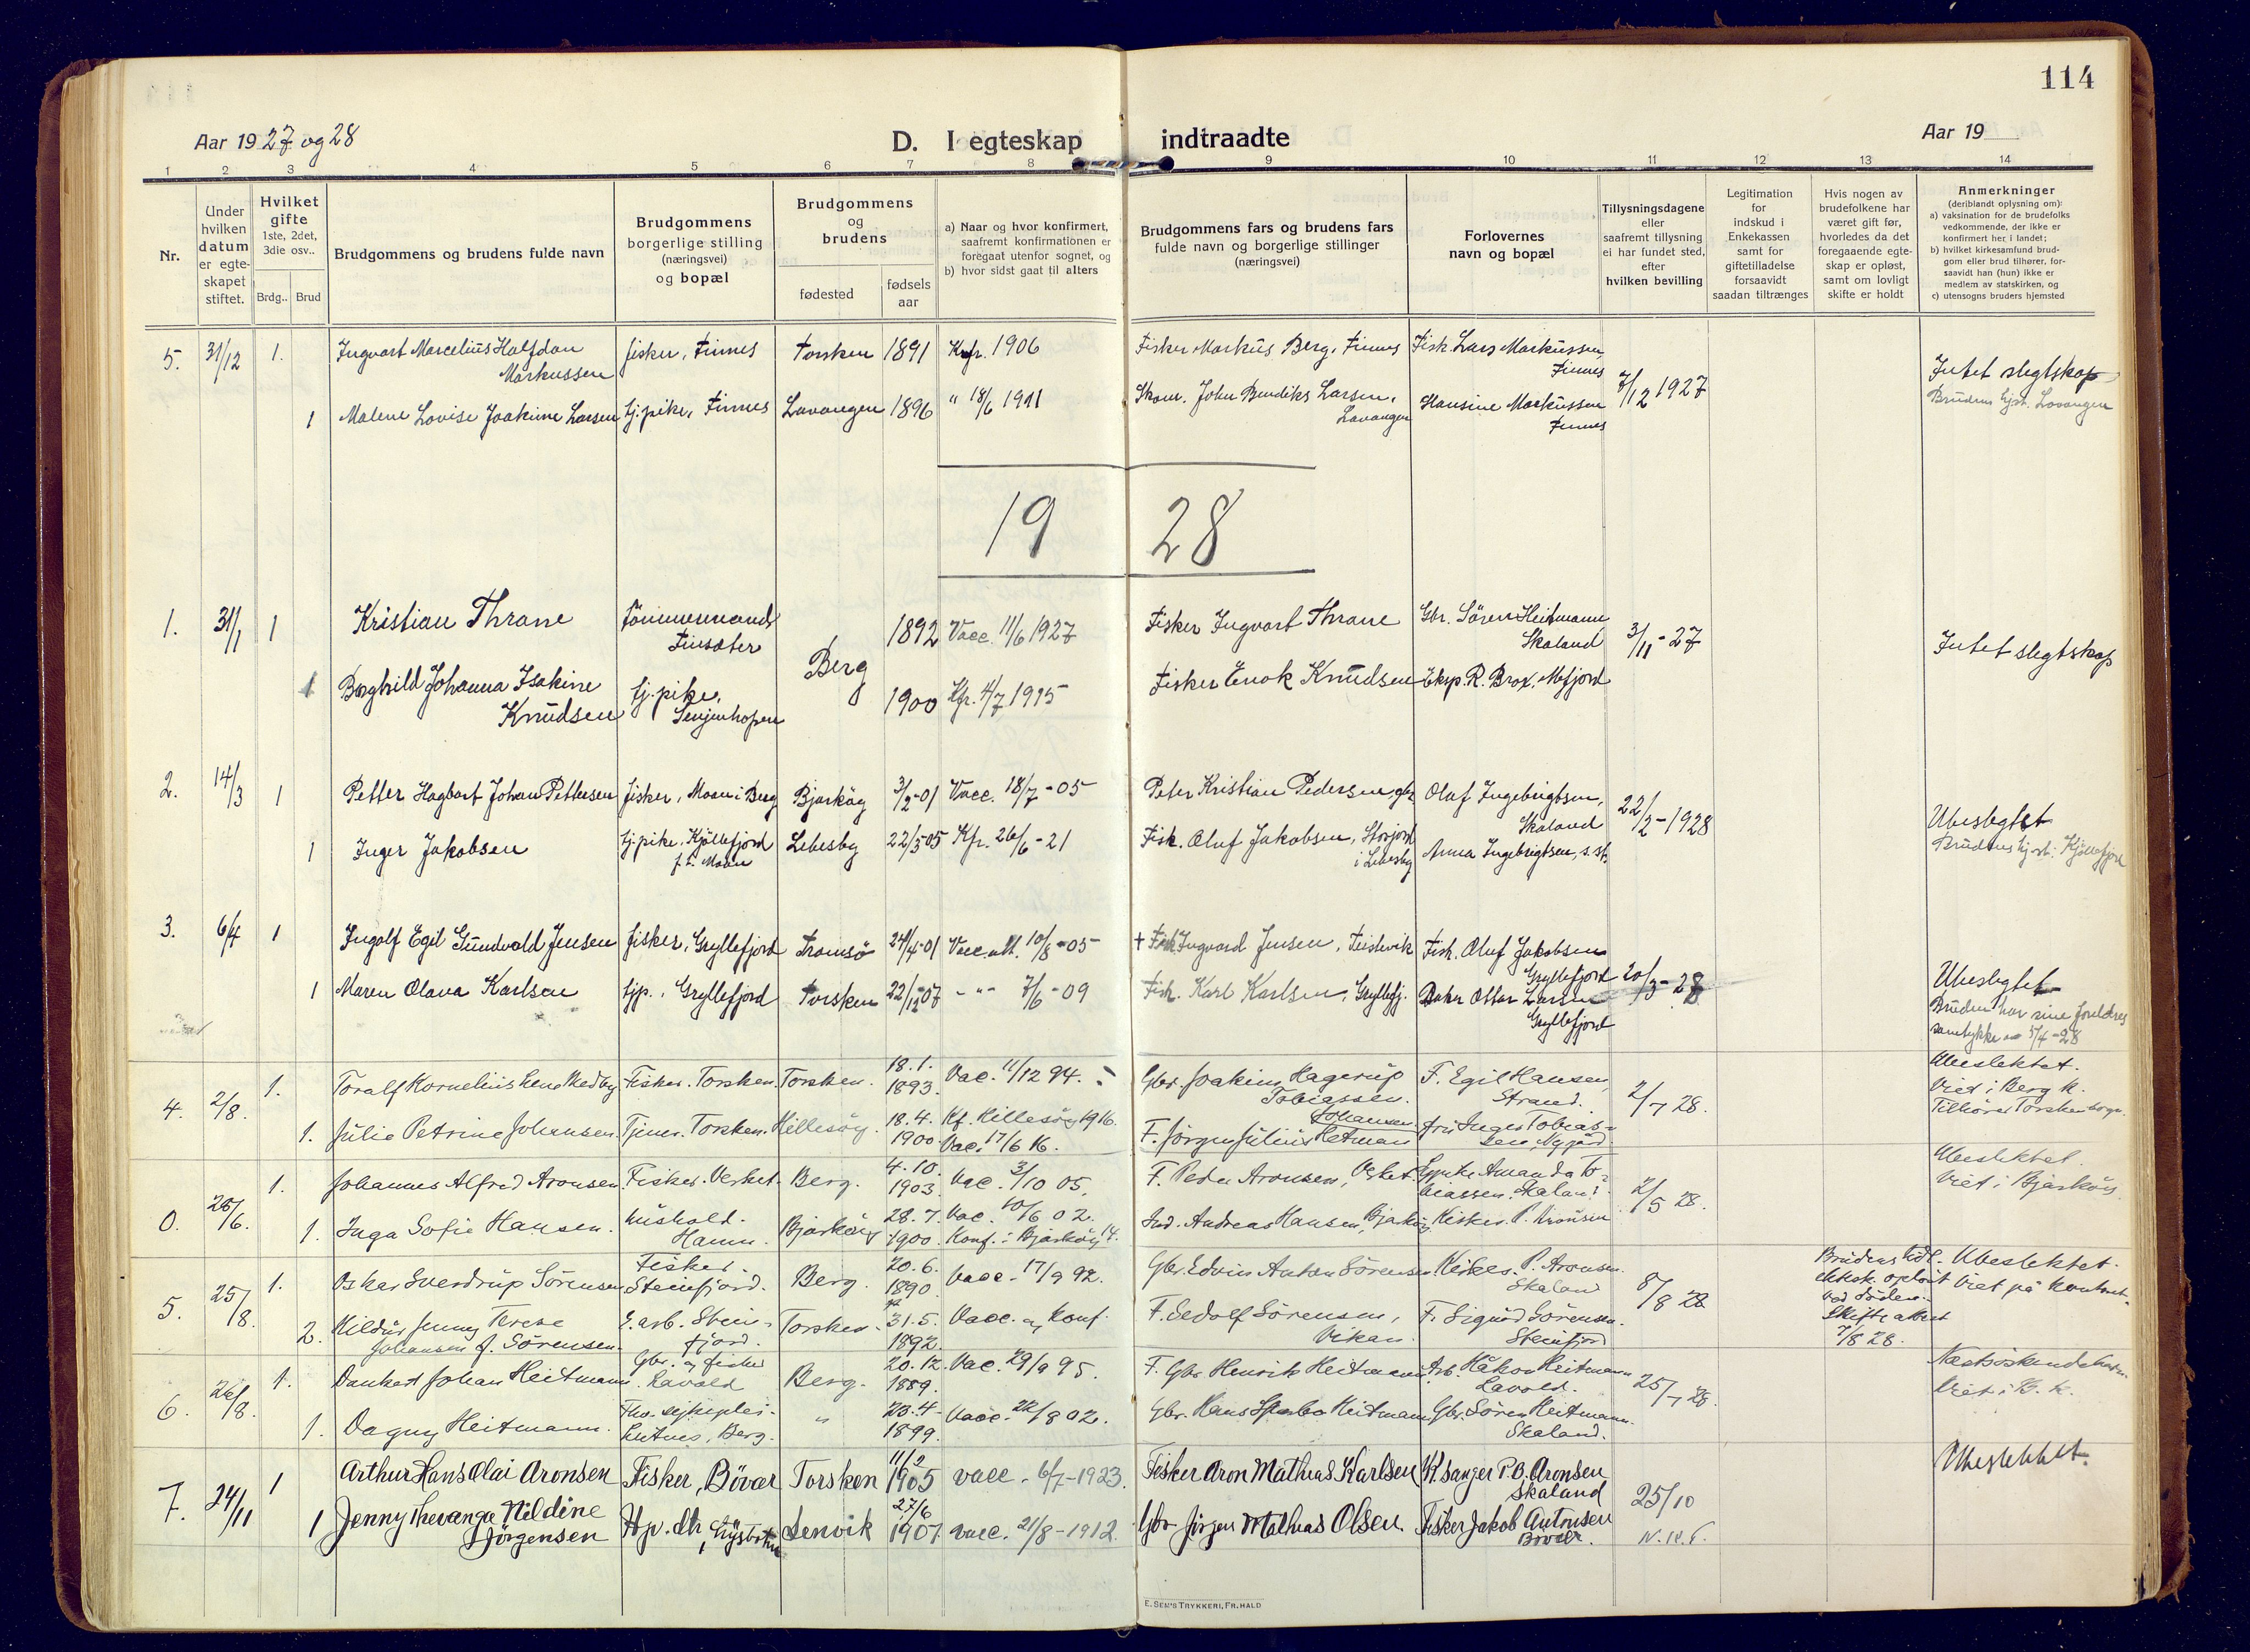 114
Aar 1927 og 28
D. I egteskap indtraadte
Aar 19
1 2 3 4 5 6 7 8 9 10 11 12 13 14
Nr.
Under hvilken datum er egte-skapet stiftet.
Hvilket gifte
1ste, 2det, 3die osv..
Brdg.. Brud
Brudgommens og brudens fulde navn
Brudgommens borgerlige stilling (næringsvei) og bopæl
Brudgommens og brudens
fødested
fødsels aar
a) Naar og hvor konfirmert, saafremt konfirmationen er foregaat utenfor sognet, og
b) hvor sidst gaat til alters
Brudgommens fars og brudens fars fulde navn og borgerlige stillinger (næringsvei)
Forlovernes navn og bopæl
Tillysningsdagene eller saafremt tillysning ei har fundet sted, efter hvilken bevilling
Legitimation for indskud i Enkekassen samt for giftetilladelse forsaavidt saadan tiltrænges
Hvis nogen av brudefolkene har været gift før, hvorledes da det foregaaende egte-skap er opløst, samt om lovligt skifte er holdt
Anmerkninger
(deriblandt oplysning om):
a) vaksination for de brudefolks vedkommende, der ikke er konfirmert her i landet;
b) hvilket kirkesamfund brud-gom eller brud tilhører, for-saavidt han (hun) ikke er medlem av statskirken, og
c) utensogns bruders hjemsted
5. 31/12 1. Ingvart Marcelius Halfdan Markussen fisker, Finnes Torsken 1891 Knfr. 1906 Fisker Markus Berg, Finnes Fisk. Lars Markussen, Finnes 7/12 1927 Intet slegtskap
1 Malene Lovise Joakime Larsen tj.pike, Finnes Lavangen 1896 " 18/6 1911 Skom. John Bendiks Larsen, Lavangen Hansine Markussen Finnes Brudens hjst. Lavangen
19 28
1. 31/1 1 Kristian Thrane tömmermand Finsæter Berg 1892 Vacc. 11/6 1927 Fisker Ingvart Thrane Gbr. Sören Heitmann Skaland 3/11-27 Intet slegtskap
1 Borghild Johanna Isakine Knudsen tj.pike, Senjenhopen 1900 Kfr. 4/7 1915 Fisker Enok Knudsen Eksp. R. Brox, Mefjord
2. 14/3 1 Petter Hagbart Johan Pettersen fisker, Moan i Berg Bjarköy 3/2-01 Vacc. 18/7-05 Peter Kristian Pedersen, gbr Oluf Ingebrigtsen, Skaland 22/2-1928 Ubeslegtet
1 Inger Jakobsen tj.pike, Kjöllefjord f.t. Moan Lebesby 22/5 05 Kfr. 26/6-21 Fisk. Oluf Jakobsen, Storfjord i Lebesby Anna Ingebrigtsen, s.st. Brudens hj.st. Kjöllefjord
3. 6/4 1 Ingolf Egil Gundvald Jensen fisker, Gryllefjord Tromsö 24/4-01 Vacc.att. 10/8-05 + Fisk Ingvard Jensen, Teistevik Fisk. Oluf Jakobsen Gryllefjord 20/3-28 Ubeslegtet
1 Maren Olava Karlsen tjp., Gryllefjord Torsken 22/12-07 - "- 7/6-09 Fisk. Karl Karlsen, Gryllefj. Baker Ottar Larsen Gryllefjord Bruden har sine foreldres samtykke 5/4-28
4. 2/8. 1. Toralf Kornelius Lene Medby Fisker. Torsken. Torsken. 18.1. 1893. Vac. 11/12 94. Gbr. Joakim Hagerup Tobiassen. F. Egil Hansen, Strand. 2/7 28. Ubeslektet. Viet i Berg k. Tilhører Torsken sogn.
1. Julie Petrine Johansen. Tjener. Torsken. Hillesöy. 18.4. 1900 Kf. Hillesöy 1916. Vac. 17/6 16. F. Jörgen Julius Hetman Johansen fru Inger Tobiassen, Nygård.
0. 26/6. 1. Johannes Alfred Aronsen. Fisker. Verket. Berg. 4.10. 1903. Vac. 3/10 05. F. Peder Aronsen, Verket. Frøken Amanda Tobiassen. Skaland. 2/5 28. Ubeslektet. Viet i Bjarköy.
1. Inga Sofie Hansen. hushold. Hamn. Bjarköy 28.7. 1900. Vac. 10/6 02. Konf. i Bjarköy 14. Ind. Andreas Hansen, Bjarköy Kirkes. P. Aronsen
5. 25/8. 1. Oskar Sverdrup Sörensen Fisker. Steinfjord. Berg. 20.6. 1890. Vacc. 17/9 92. Gbr. Edvin Anton Sörensen. Kirkes. P. Aronsen. Skaland 8/8 28 Brudens tidl. ektesk. oplöst ved döden. Skifteattest 7/8 28. Ubeslektet. Viet på kontoret.
2. Hildur Jenny Terese Johansen f. Sörensen. E. arb. Steinfjord. Torsken. 31.5. 1892. Vacc. og Konf. F. Sedolf Sörensen, Vikan. F. Sigurd Sörensen. Steinfjord
6. 26/8. 1. Dankert Johan Heitmann Gbr. og fisker Lavold Berg. 20.12. 1889. Vac. 29/9 95. F. Gbr Henrik Heitmann Arb. Håkon Heitmann Lavold. 25/7 28. Næstsöskendebarn. Viet i B. k.
1. Dagny Heitmann. Leitnes, Berg. " 23.4. 1899. Vacc. 22/8 02. Gbr. Hans Heitmann Gbr. Sören Heitmann. Skaland.
7. 24/11 1 Arthur Hans Olai Aronsen Fisker, Bövær Torsken 11/2 1905 vacc. 6/7-1923. Fisker Aron Mathias Karlsen Kl. sanger P.B. Aronsen Skaland 25/10 Ubeslektet.
1 Jenny Thevanga Hildine Jörgensen Hjv. dtr, Lysbotn Lenvik 27/6 1907. vacc. 21/8-1912. Gbr Jörgen Mathias Olsen. Fisker Jakob Antonsen Bövær. N.K.T.
E. SEM'S TRYKKERI, FR.HALD